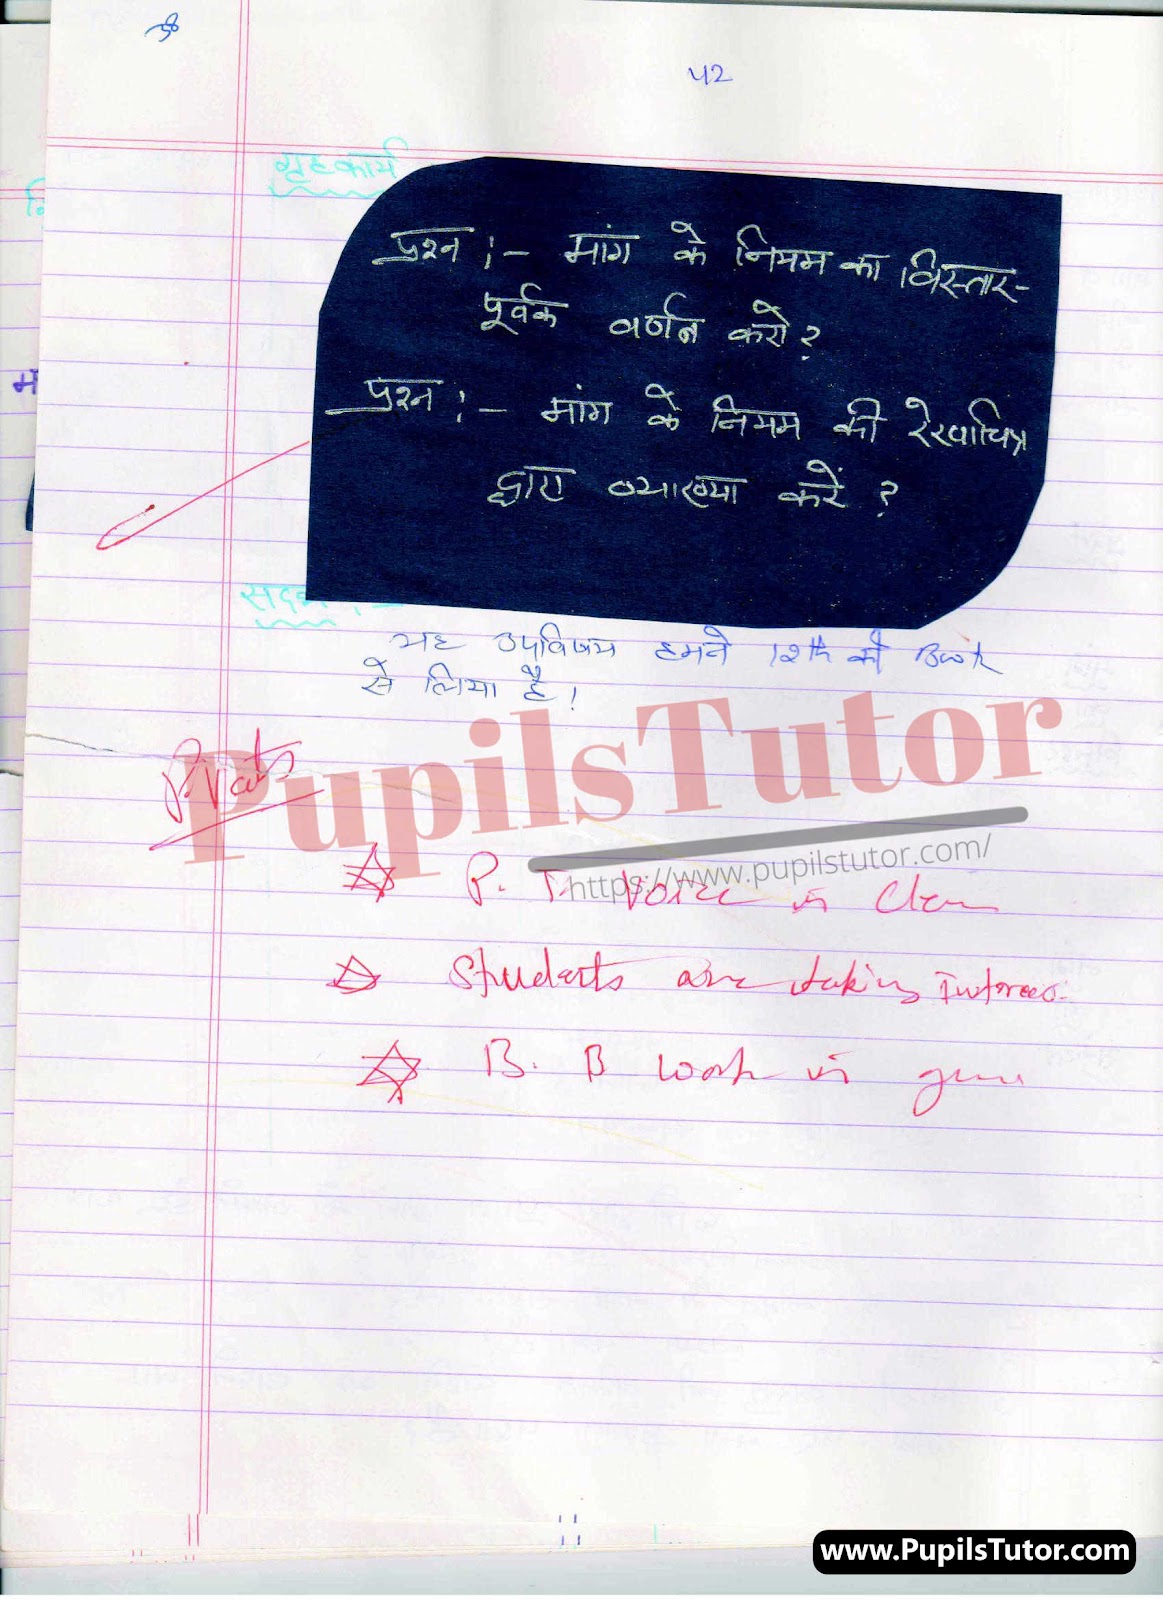 ॐ
42
गृहकार्य
प्रश्न :- मांग के नियम का विस्तार-
पूर्वक वर्णन करो ?
प्रश्न :- मांग के नियम की रेखाचित्र
द्वारा व्याख्या करें ?
यह उपविषय हमने 12th की Book
से लिया है।
PupilsTutor
https://www.pupilstutor.com/
P. T. Voice is Clear
Students are taking Interest.
B. B work is
www.PupilsTutor.com